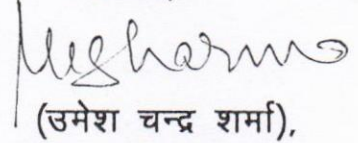 (उमेश चन्द्र शर्मा),